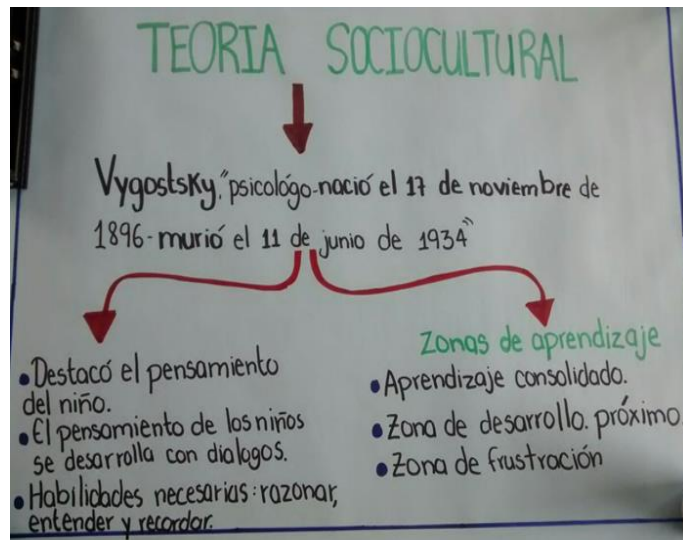 TEORIA SOCIOCULTURAL
Vygostsky. "psicológo-nació el 17 de noviembre de
1896-murió el 11 de junio de 1934"
• Destacó el pensamiento
del niño.
• El pensamiento de los niños
se desarrolla con dialogos.
• Habilidades necesarias: razonar,
entender y recordar.
Zonas de aprendizaje
• Aprendizaje consolidado.
• Zona de desarrollo. próximo
• Zona de frustración